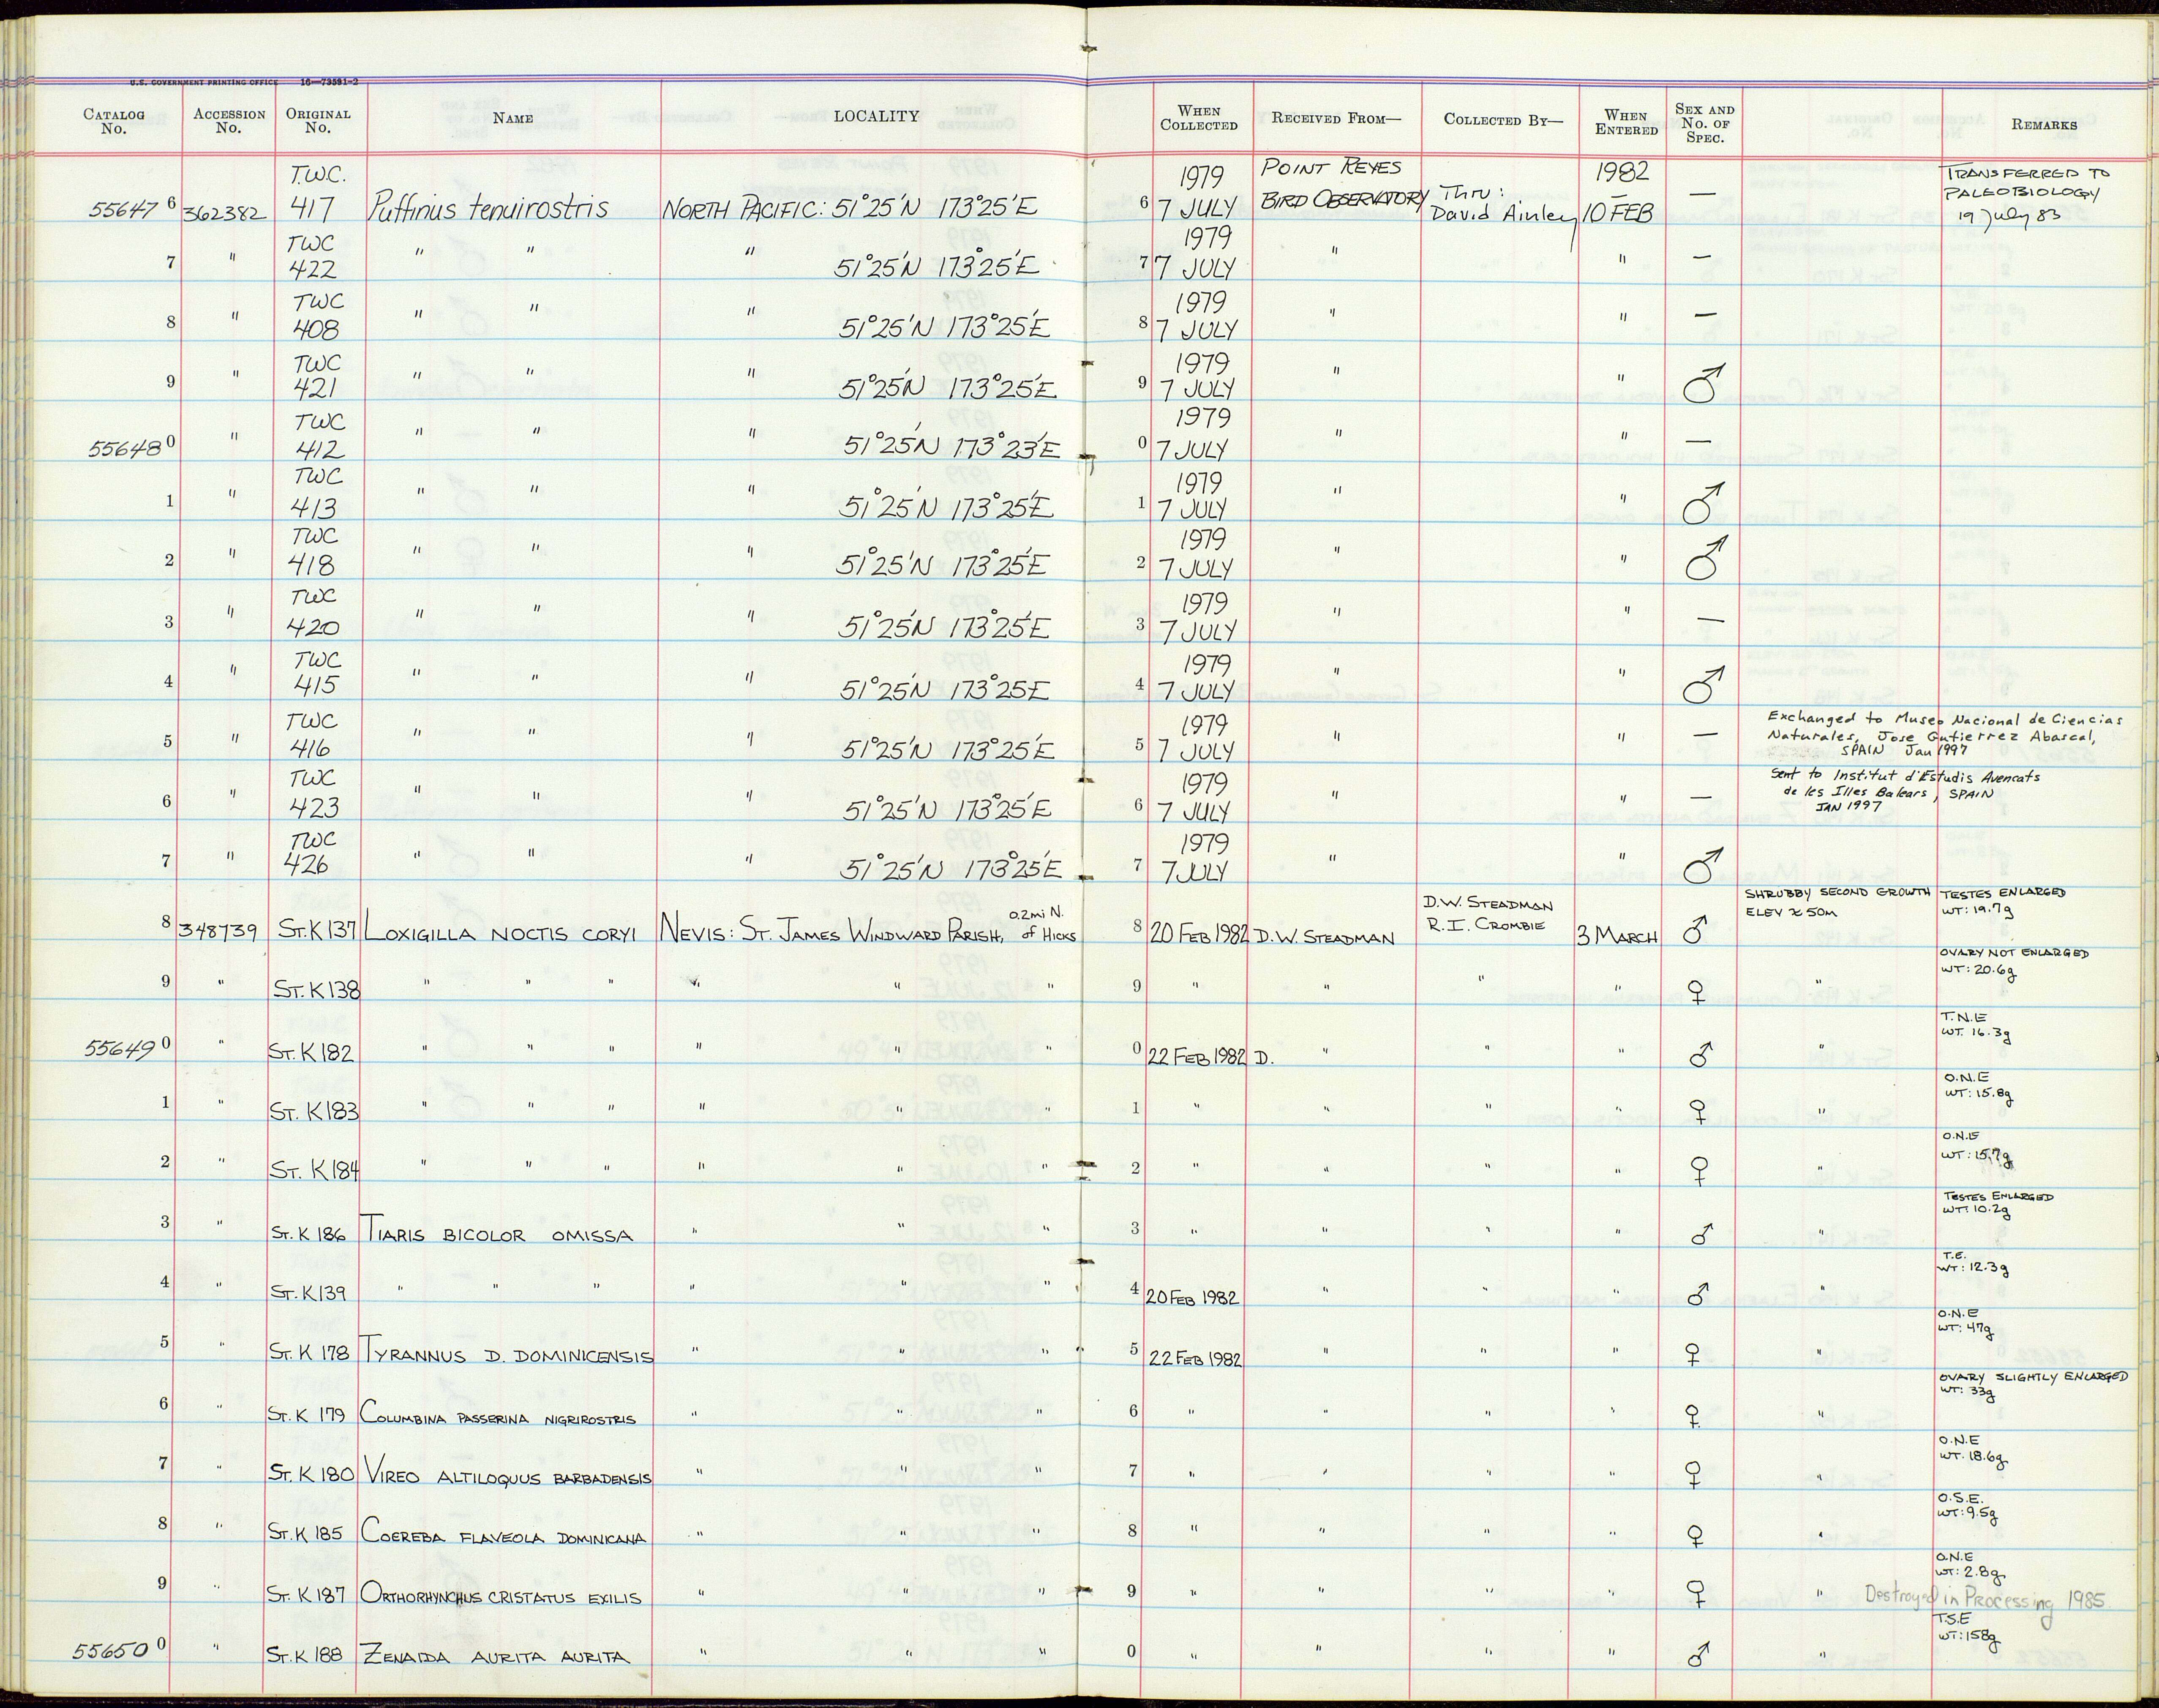 U.S. GOVERNMENT PRINTING OFFICE 16—73591-2
CATALOG No. ACCESSION No. ORIGINAL No. NAME LOCALITY WHEN COLLECTED RECEIVED FROM— COLLECTED BY— WHEN ENTERED SEX AND No. OF SPEC. REMARKS
T.W.C. 1979 POINT REYES 1982 TRANSFERRED TO
55647 6 362382 417 Puffinus tenuirostris NORTH PACIFIC: 51°25'N 173°25'E 6 7 JULY BIRD OBSERVATORY Thru: David Ainley 10 FEB — PALEOBIOLOGY 19 July 83
TWC 1979
7 " 422 " " " 51°25'N 173°25'E 7 7 JULY " " —
TWC 1979
8 " 408 " " " 51°25'N 173°25'E 8 7 JULY " " —
TWC 1979
9 " 421 " " " 51°25'N 173°25'E 9 7 JULY " " ♂
TWC 1979
55648 0 " 412 " " " 51°25'N 173°23'E 0 7 JULY " " —
TWC 1979
1 " 413 " " " 51°25'N 173°25'E 1 7 JULY " " ♂
TWC 1979
2 " 418 " " " 51°25'N 173°25'E 2 7 JULY " " ♂
TWC 1979
3 " 420 " " " 51°25'N 173°25'E 3 7 JULY " " —
TWC 1979
4 " 415 " " " 51°25'N 173°25'E 4 7 JULY " " ♂
TWC 1979 Exchanged to Museo Nacional de Ciencias
5 " 416 " " " 51°25'N 173°25'E 5 7 JULY " " — Naturales, Jose Gutierrez Abascal,
SPAIN Jan 1997
TWC 1979 Sent to Institut d'Estudis Avencats
6 " 423 " " " 51°25'N 173°25'E 6 7 JULY " " — de les Illes Balears, SPAIN
JAN 1997
TWC 1979
7 " 426 " " " 51°25'N 173°25'E 7 7 JULY " " ♂
0.2mi N. D.W. STEADMAN SHRUBBY SECOND GROWTH TESTES ENLARGED
8 348739 ST.K 137 LOXIGILLA NOCTIS CORYI NEVIS: ST. JAMES WINDWARD PARISH, of HICKS 8 20 FEB 1982 D.W. STEADMAN R.I. CROMBIE 3 MARCH ♂ ELEV ≈ 50m WT: 19.7g
OVARY NOT ENLARGED
9 " ST.K 138 " " " " " " 9 " " " " ♀ " WT: 20.6g
T.N.E
55649 0 " ST.K 182 " " " " " " 0 22 FEB 1982 D. " " " ♂ " WT. 16.3g
O.N.E
1 " ST. K 183 " " " " " " 1 " " " " ♀ " WT: 15.8g
O.N.E
2 " ST. K 184 " " " " " " 2 " " " " ♀ " WT: 15.7g
TESTES ENLARGED
3 " ST. K 186 TIARIS BICOLOR OMISSA " " " 3 " " " " ♂ " WT: 10.2g
T.E.
4 " ST. K 139 " " " " " " 4 20 FEB 1982 " " " ♂ " WT: 12.3g
O.N.E
5 " ST. K 178 TYRANNUS D. DOMINICENSIS " " " 5 22 FEB 1982 " " " ♀ " WT: 47g
OVARY SLIGHTLY ENLARGED
6 " ST. K 179 COLUMBINA PASSERINA NIGRIROSTRIS " " " 6 " " " " ♀ " WT: 33g
O.N.E
7 " ST. K 180 VIREO ALTILOQUUS BARBADENSIS " " " 7 " " " " ♀ " WT. 18.6g
O.S.E.
8 " ST. K 185 COEREBA FLAVEOLA DOMINICANA " " " 8 " " " " ♀ " WT: 9.5g
O.N.E
WT: 2.8g
9 " ST. K 187 ORTHORHYNCHUS CRISTATUS EXILIS " " " 9 " " " " ♀ " Destroyed in Processing 1985
T.S.E
55650 0 " ST. K 188 ZENAIDA AURITA AURITA " " " 0 " " " " ♂ " WT: 158g